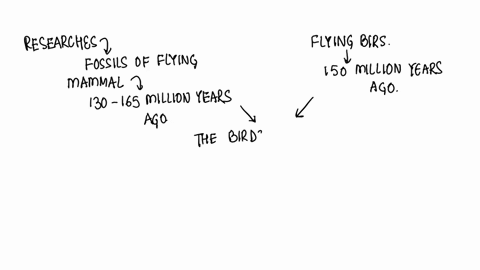 RESEARCHES
FOSSILS OF FLYING
MAMMAL
130-165 MILLION YEARS
AGO
FLYING BIRS.
150 MILLION YEARS
AGO.
THE BIRD